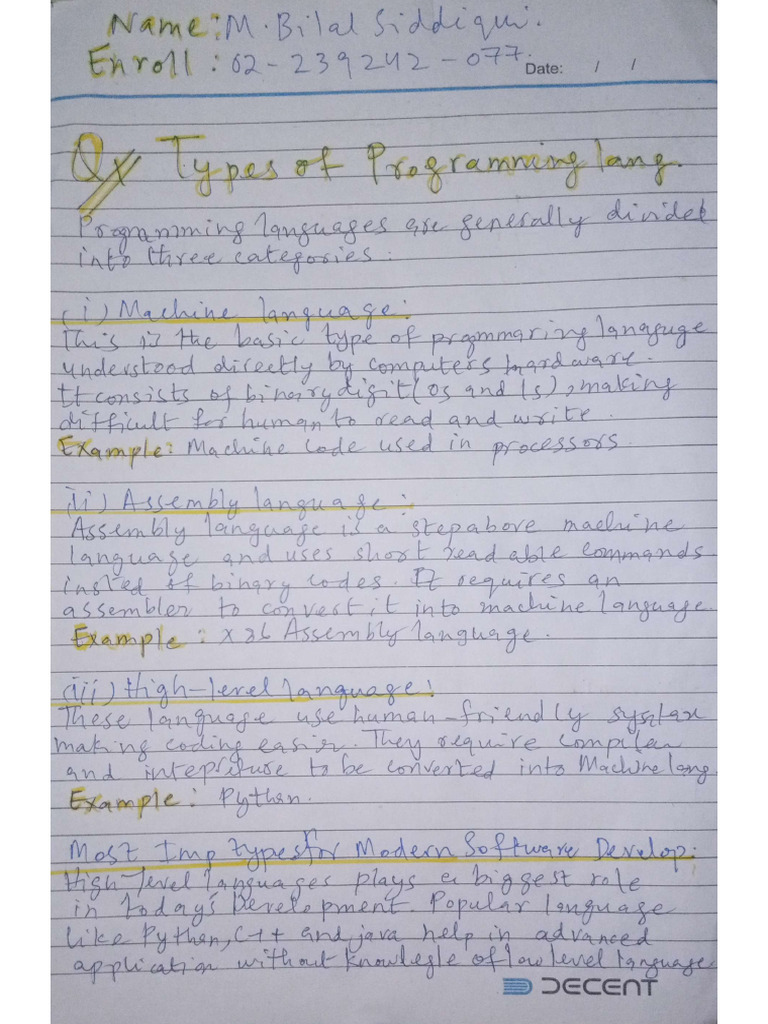 Name: M. Bilal Siddiqui.
Enroll: 02-239242-077.
Date: / /
Types of Programming lang.
Programming languages are generally divided
into three categories.
(i) Machine language:
This is the basic type of progmmaring lanaguge
understood directly by computers hardware.
It consists of binary digit (0s and 1s), making
difficult for human to read and write.
Example: Machine Code used in processors
(ii) Assembly language:
Assembly language is a step above machine
language and uses short readable commands
insted of binary codes. It requires an
assembler to convert it into machine language.
Example: x86 Assembly language.
(iii) High-level language:
These language use human-friendly
making coding easier. They require compiler
and to be converted into Machine lang
Example: Python.
Most Imp types for Modern Software Develop:
High-level languages plays a biggest role
in today's Development. Popular language
like Python, C++ and java help in advanced
application without knowlegle of low level language
DECENT